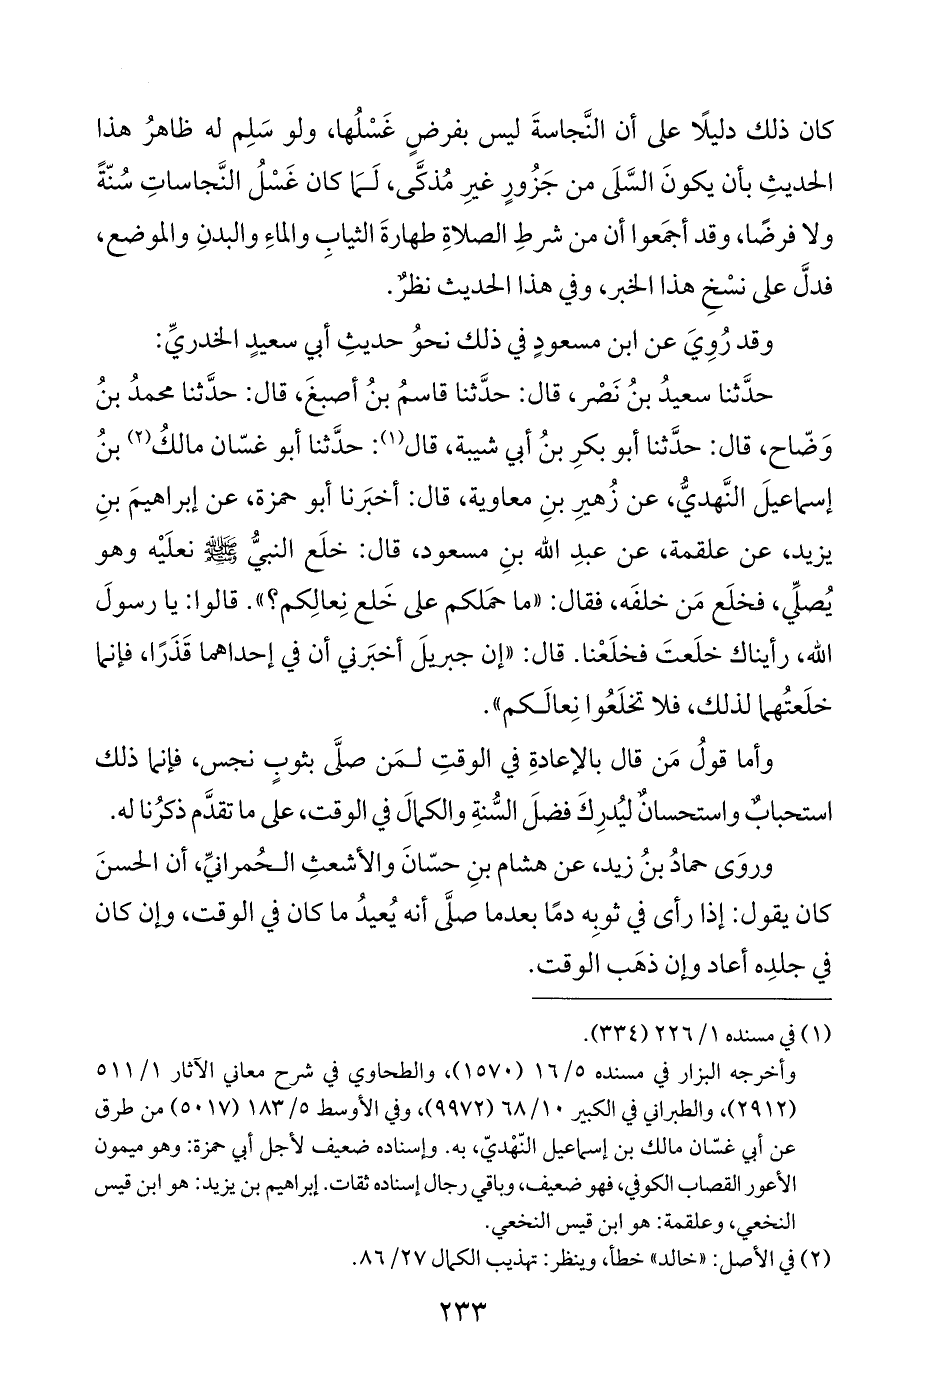 كان ذلك دليلًا على أن النَّجاسةَ ليس بفرضٍ غَسْلُها، ولو سَلِم له ظاهرُ هذا
الحديثِ بأن يكونَ السَّلَى من جَزُورٍ غيرِ مُذكَّى، لَـمَا كان غَسْلُ النَّجاساتِ سُنّةً
ولا فرضًا، وقد أجمَعوا أن من شرطِ الصلاةِ طهارةَ الثيابِ والماءِ والبدنِ والموضع،
فدلَّ على نسْخِ هذا الخبر، وفي هذا الحديث نظرٌ.
وقد رُوِيَ عن ابن مسعودٍ في ذلك نحوُ حديثِ أبي سعيدٍ الخدريِّ:
حدَّثنا سعيدُ بنُ نَصْر، قال: حدَّثنا قاسمُ بنُ أصبغَ، قال: حدَّثنا محمدُ بنُ
وَضّاح، قال: حدَّثنا أبو بكرِ بنُ أبي شيبة، قال(١): حدَّثنا أبو غسّان مالكُ(٢) بنُ
إسماعيلَ النَّهديُّ، عن زُهيرِ بنِ معاوية، قال: أخبَرنا أبو حمزة، عن إبراهيمَ بنِ
يزيد، عن علقمة، عن عبدِ الله بنِ مسعود، قال: خلَع النبيُّ ﷺ نعلَيْه وهو
يُصلِّي، فخلَع مَن خلفَه، فقال: «ما حمَلكم على خَلع نِعالِكم؟». قالوا: يا رسولَ
الله، رأيناك خلَعتَ فخلَعْنا. قال: «إن جبريلَ أخبَرني أن في إحداهما قَذَرًا، فإنما
خلَعتُهما لذلك، فلا تخلَعُوا نِعالَـكم».
وأما قولُ مَن قال بالإعادةِ في الوقتِ لـمَن صلَّى بثوبٍ نجس، فإنما ذلك
استحبابٌ واستحسانٌ ليُدرِكَ فضلَ السُّنةِ والكمالَ في الوقت، على ما تقدَّم ذكرُنا له.
وروَى حمادُ بنُ زيد، عن هشام بنِ حسّانَ والأشعثِ الـحُمرانيِّ، أن الحسنَ
كان يقول: إذا رأى في ثوبِه دمًا بعدما صلَّى أنه يُعيدُ ما كان في الوقت، وإن كان
في جلدِه أعاد وإن ذهَب الوقت.
(١) في مسنده ١/ ٢٢٦ (٣٣٤).
وأخرجه البزار في مسنده ٥/ ١٦ (١٥٧٠)، والطحاوي في شرح معاني الآثار ١/ ٥١١
(٢٩١٢)، والطبراني في الكبير ١٠/ ٦٨ (٩٩٧٢)، وفي الأوسط ٥/ ١٨٣ (٥٠١٧) من طرق
عن أبي غسّان مالك بن إسماعيل النّهْديّ، به. وإسناده ضعيف لأجل أبي حمزة: وهو ميمون
الأعور القصاب الكوفي، فهو ضعيف، وباقي رجال إسناده ثقات. إبراهيم بن يزيد: هو ابن قيس
النخعي، وعلقمة: هو ابن قيس النخعي.
(٢) في الأصل: «خالد» خطأ، وينظر: تهذيب الكمال ٢٧/ ٨٦.
٢٣٣